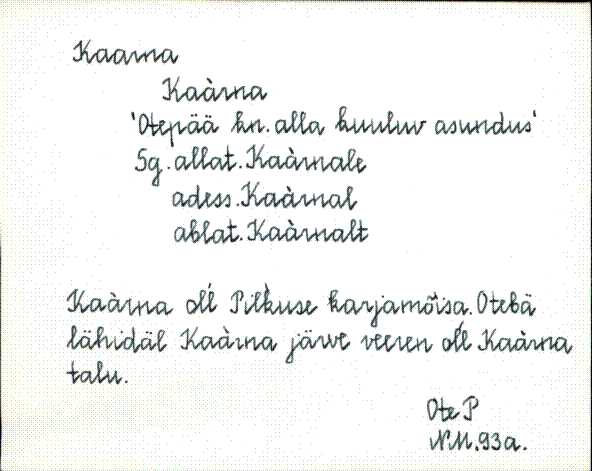 Kaarna
Kaàrna
'Otepää kn. alla kuuluv asundus'
Sg. allat. Kaàrnale
adess. Kaàrnal
ablat. Kaàrnalt
Kaàrna oĺl Pil̀kuse karjamõisa. Otebä
lähidäl Kaàrna järve veeren oĺl Kaàrna
talu.
Ote P
N.M. 93a.